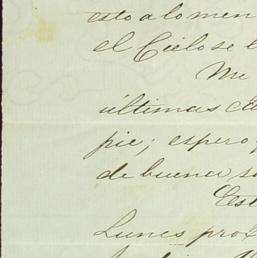 esto a lo men
el Cielo se l
Me
últimas
pie; espero
de buena s
Est
Lunes pro